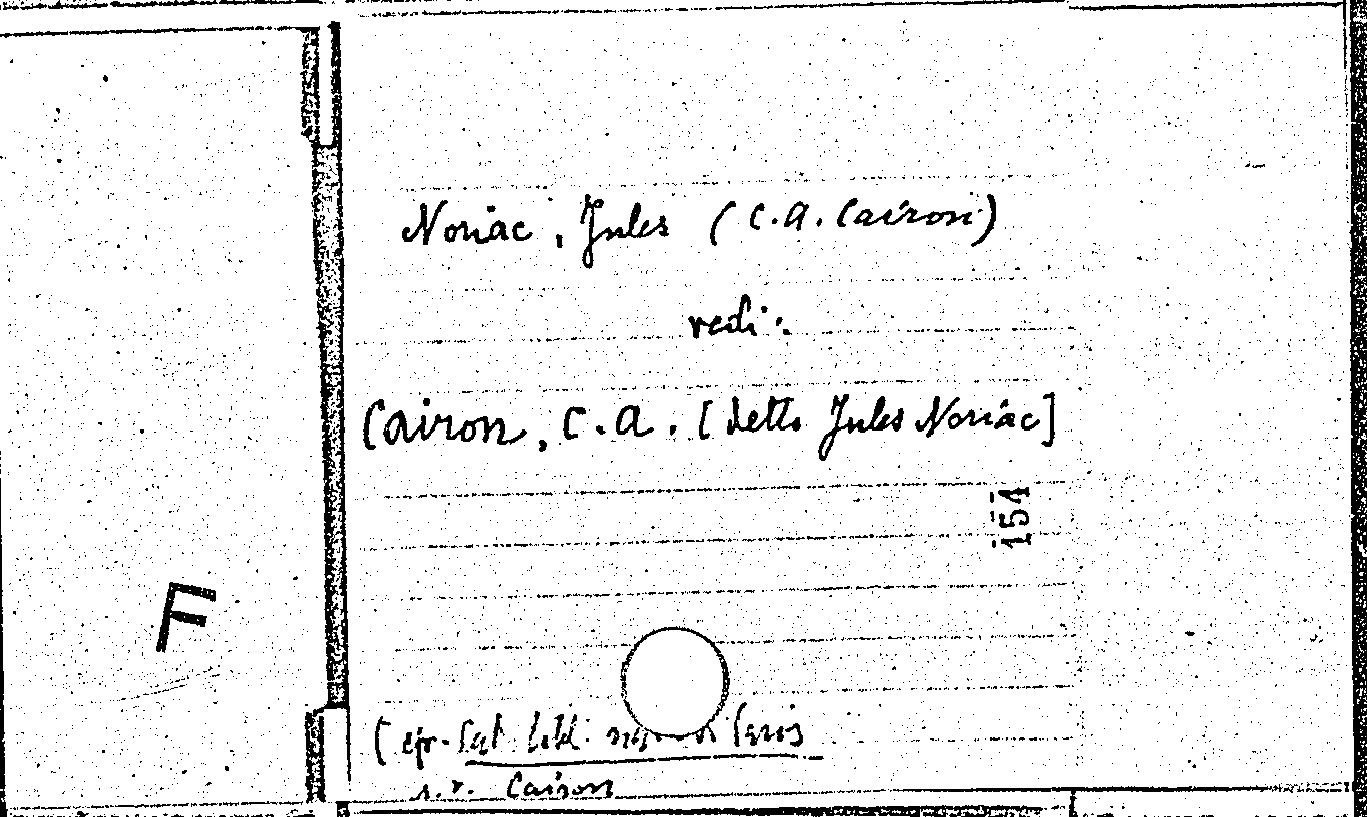 Noriac, Jules (C.A. Cairon)
vedi:
Cairon, C.A. [detto Jules Noriac]
154
F
(cfr. Cat. bibl. Paris
s.v. Cairon